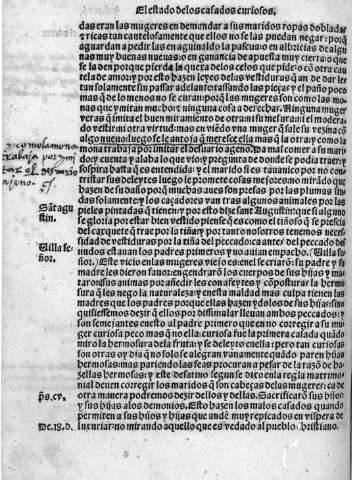 El estado de los casados curiosos.
das eran las mugeres en demandar a sus maridos ropas dobladas
y ricas tan cautelosamente que ellos no se las puedan negar: porq̃
aguardan a pedir las en aguinaldo la pascua: o en albricias de algu
nas muy buenas nueuas: o en ganancia de apuesta muy cierta: o que
se la den porque pierda la quexa de los celos que pide: o cõ otra cau
tela de amor: y por esto hazen leyes de las vestiduras q̃ an de dar les
tan solamente sin passar adelante tassando las pieças: y el paño poco
mas que lo menos no se curan: porq̃ las mugeres son como las mo
nas que ymitan mucho: y ninguna cosa a derechas. Ninguna muger
veras q̃ ymita el buen miramiento de otra: ni su mesura: ni el modera
do vestir: ni otra virtud: mas en viẽdo vna muger q̃ sale su vezina cõ
algo nueuo luego se le antoja q̃ meresce ella mas q̃ la otra: y como la
mona trabaja por imitar el desuario ageno. Da mal comer a su mari
do: y cuenta y alaba lo que vio: y pregunta de donde se podia traer: y
sospira hasta q̃ es entendida: y el marido si es tauanico por no con
tristar sus deleytes luego le promete cosas mejores: no mirando que
hazen de su daño porq̃ muchas aues son presas por las plumas lin
das solamente: y los caçadores van tras algunos animales por las
pieles pintadas q̃ tienen: y por esto dize sant Augustin: que si alguno
se gloria por estar bien vestido que es como el tiñoso q̃ se precia
del carquete q̃ trae por la tiña: y por tanto nosotros tenemos neces
sidad de vestiduras por la tiña del peccado: ca antes del peccado des
nudos estauan los padres primeros y no auian empacho. (Uilla se
ñor.) Este vicio en las mugeres viejo es: mes le criarõ: su padre y su
madre les dieron fauor: engendrarõ los cuerpos de sus hijas y ma
taron sus animas por añedir les con afeytes y cõposturas la hermosu
ra q̃ les nego la naturaleza: y en esta maldad mas culpa tienen las
madres que los padres porque ellas hazen ydolos de sus hijas: sino
quisiessemos dezir q̃ ellos por dissimular lleuan ambos peccados: y
san semejantes en esto al padre primero que en no corregir a su mu
ger curiosa peco mas q̃ no ella: curiosa fue la primera casada quãdo
miro la hermosura dela fruta: y se deleyto en ella: pero tan curiosas
son otras oy dia q̃ no solo se alegran vanamente quãdo paren hijas
hermosas: mas pariendo las feas procuran a pesar de la razõ de ha
zellas hermosas: y este desatino segun se dixo en la regla matrimo
nial deuen corregir los maridos q̃ son cabeças de las mugeres: ca de
otra manera podremos dezir dellos y dellas. Sacrificarõ sus hijos
y sus hijas a los demonios. Esto hazen los malos casados quando
permiten a sus hijos y hijas que andẽ muy repulidos: en vispera de
luxuriar: no mirando aquello que es vedado al pueblo christiano.
y como la mona
trabaja por ymi
tar el desuario
ageno.
Sãt agu
stin.
Uilla se
ñor.
ps. cv.
De. 18. d.